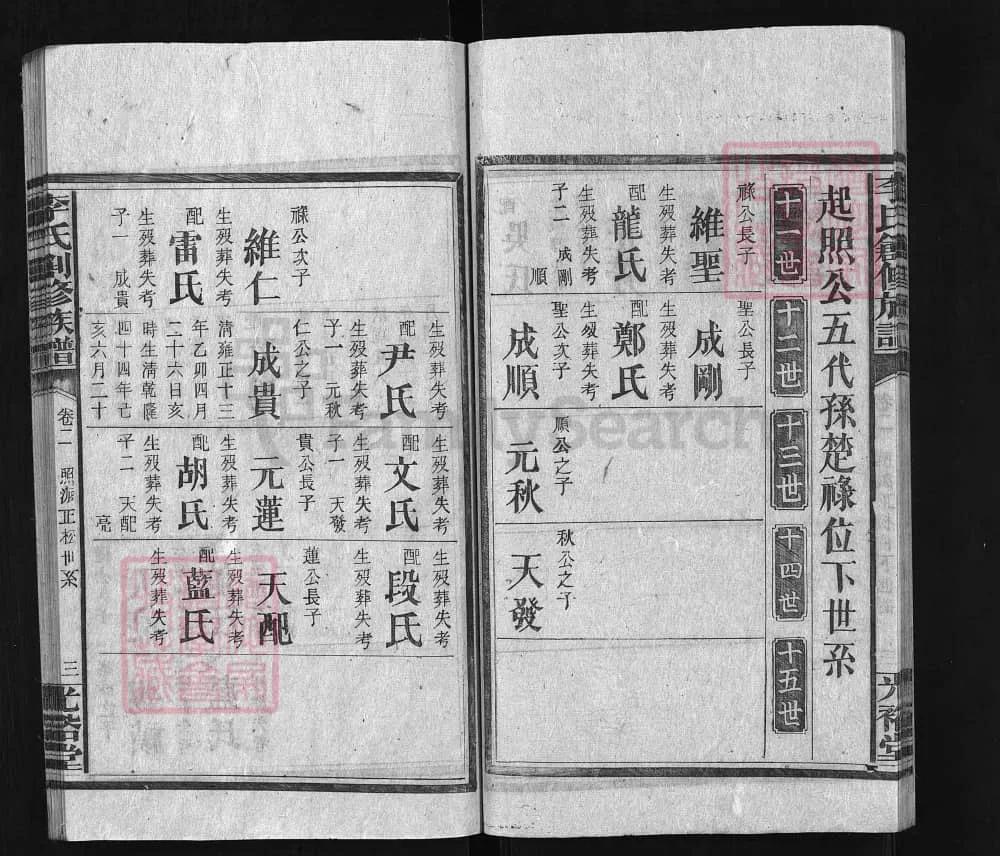 起照公五代孫楚祿位下世系
十一世
十二世
十三世
十四世
十五世
祿公長子
維聖
生歿葬失考
配
龍氏
生歿葬失考
子二
成剛
順
聖公長子
成剛
生歿葬失考
配
鄭氏
生歿葬失考
聖公次子
成順
順公之子
元秋
秋公之子
天發
祿公次子
維仁
生歿葬失考
配
雷氏
生歿葬失考
子一
成貴
生歿葬失考
配
尹氏
生歿葬失考
子一
元秋
仁公之子
成貴
清雍正十三
年乙卯四月
二十六日亥
時生清乾隆
四十四年己
亥六月二十
生歿葬失考
配
文氏
生歿葬失考
子一
天發
貴公長子
元蓮
生歿葬失考
配
胡氏
生歿葬失考
子二
天配
亮
生歿葬失考
配
段氏
生歿葬失考
蓮公長子
天配
生歿葬失考
配
藍氏
生歿葬失考
李氏創修族譜
卷二
照派正松世系
三
光裕堂
李氏創修族譜
光裕堂
FamilySearch